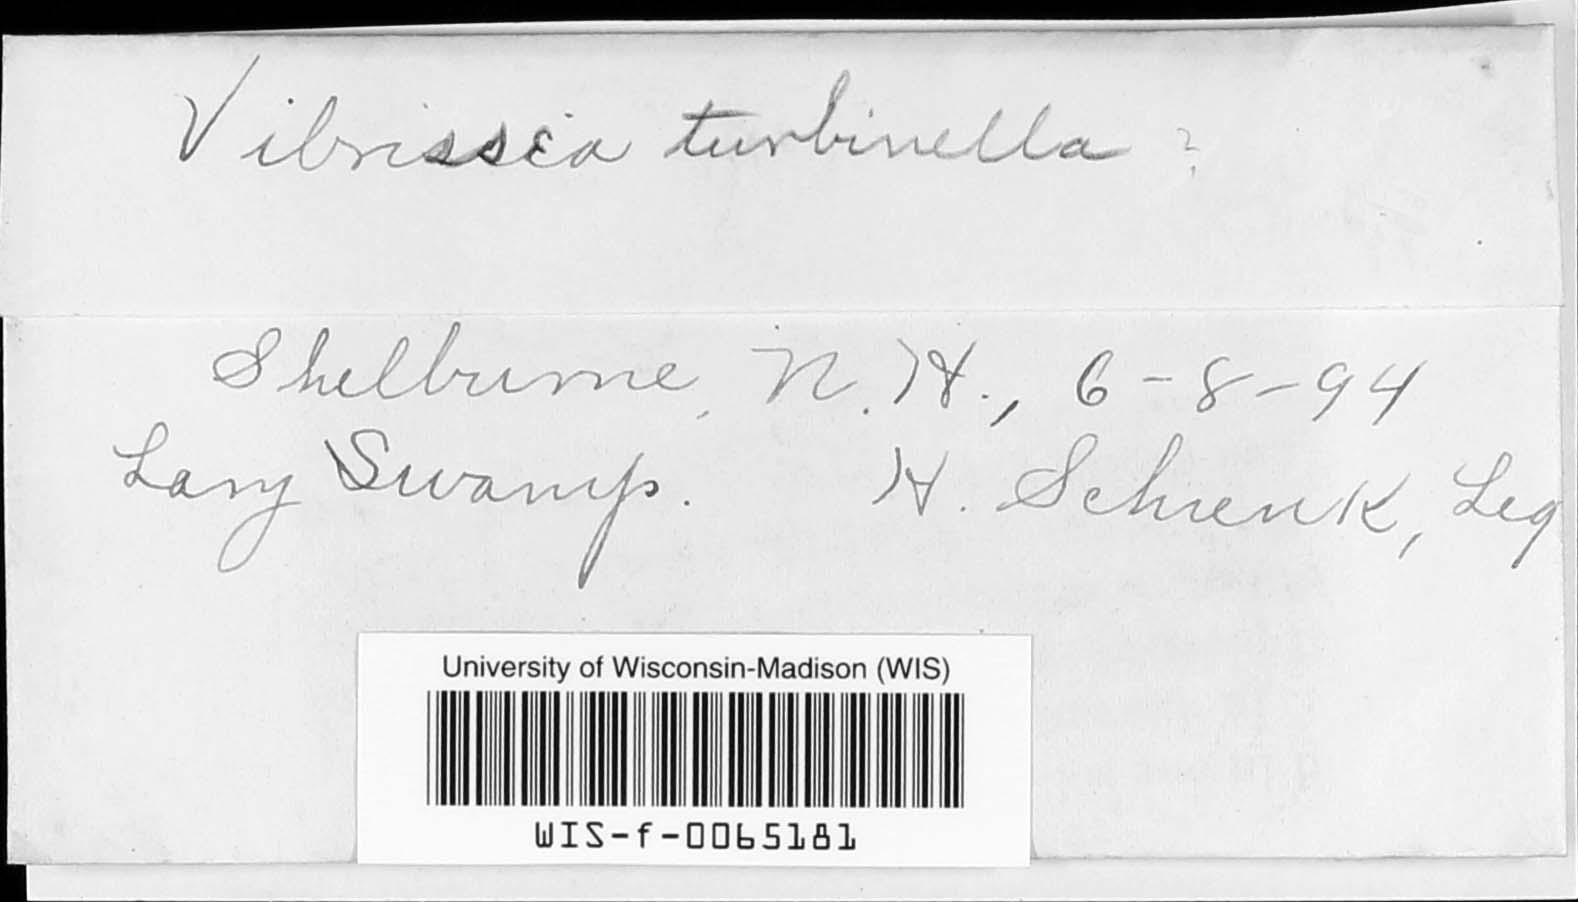 Vibrissea turbinella ?
Shelburne, N. H., 6-8-94
Lary Swamp. H. Schrenk, Leg
University of Wisconsin-Madison (WIS)
WIS-f-0065181